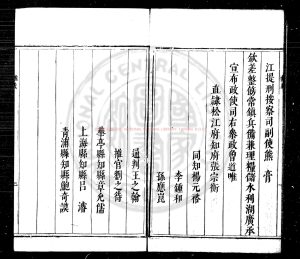 江提刑按察司副使熊 膏
欽差整飭常鎮兵備兼理糧儲水利湖廣承
宣布政使司右參政曾道唯
直隸松江府知府張宗衡
同知楊元裔
李鍾和
孫應崑
通判王之翰
推官劉之待
華亭縣知縣章允儒
上海縣知縣呂濬
青浦縣知縣